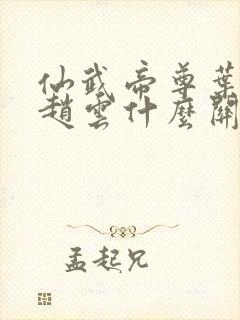 仙武帝尊葉
趙雲什麼關
孟起兄